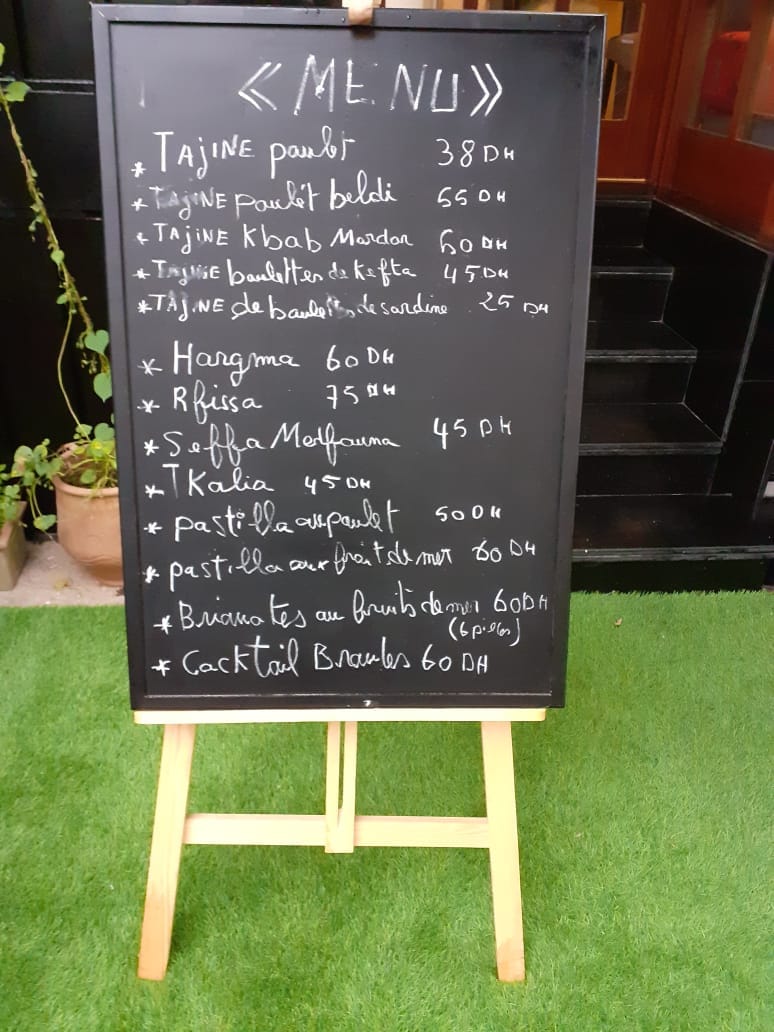 « MENU »
* TAJINE poulet 38 DH
* TAJINE poulet beldi 55 DH
* TAJINE Kbab Mardor 60 DH
* TAJINE boulettes de Kefta 45 DH
* TAJINE de boulettes de sardine 25 DH
* Hargma 60 DH
* Rfissa 75 DH
* Seffa Medfouna 45 DH
* TKalia 45 DH
* pastilla au poulet 50 DH
* pastilla aux fruit de mer 60 DH
* Briouates au fruits de mer 60 DH
(6 pièces)
* Cocktail 60 DH